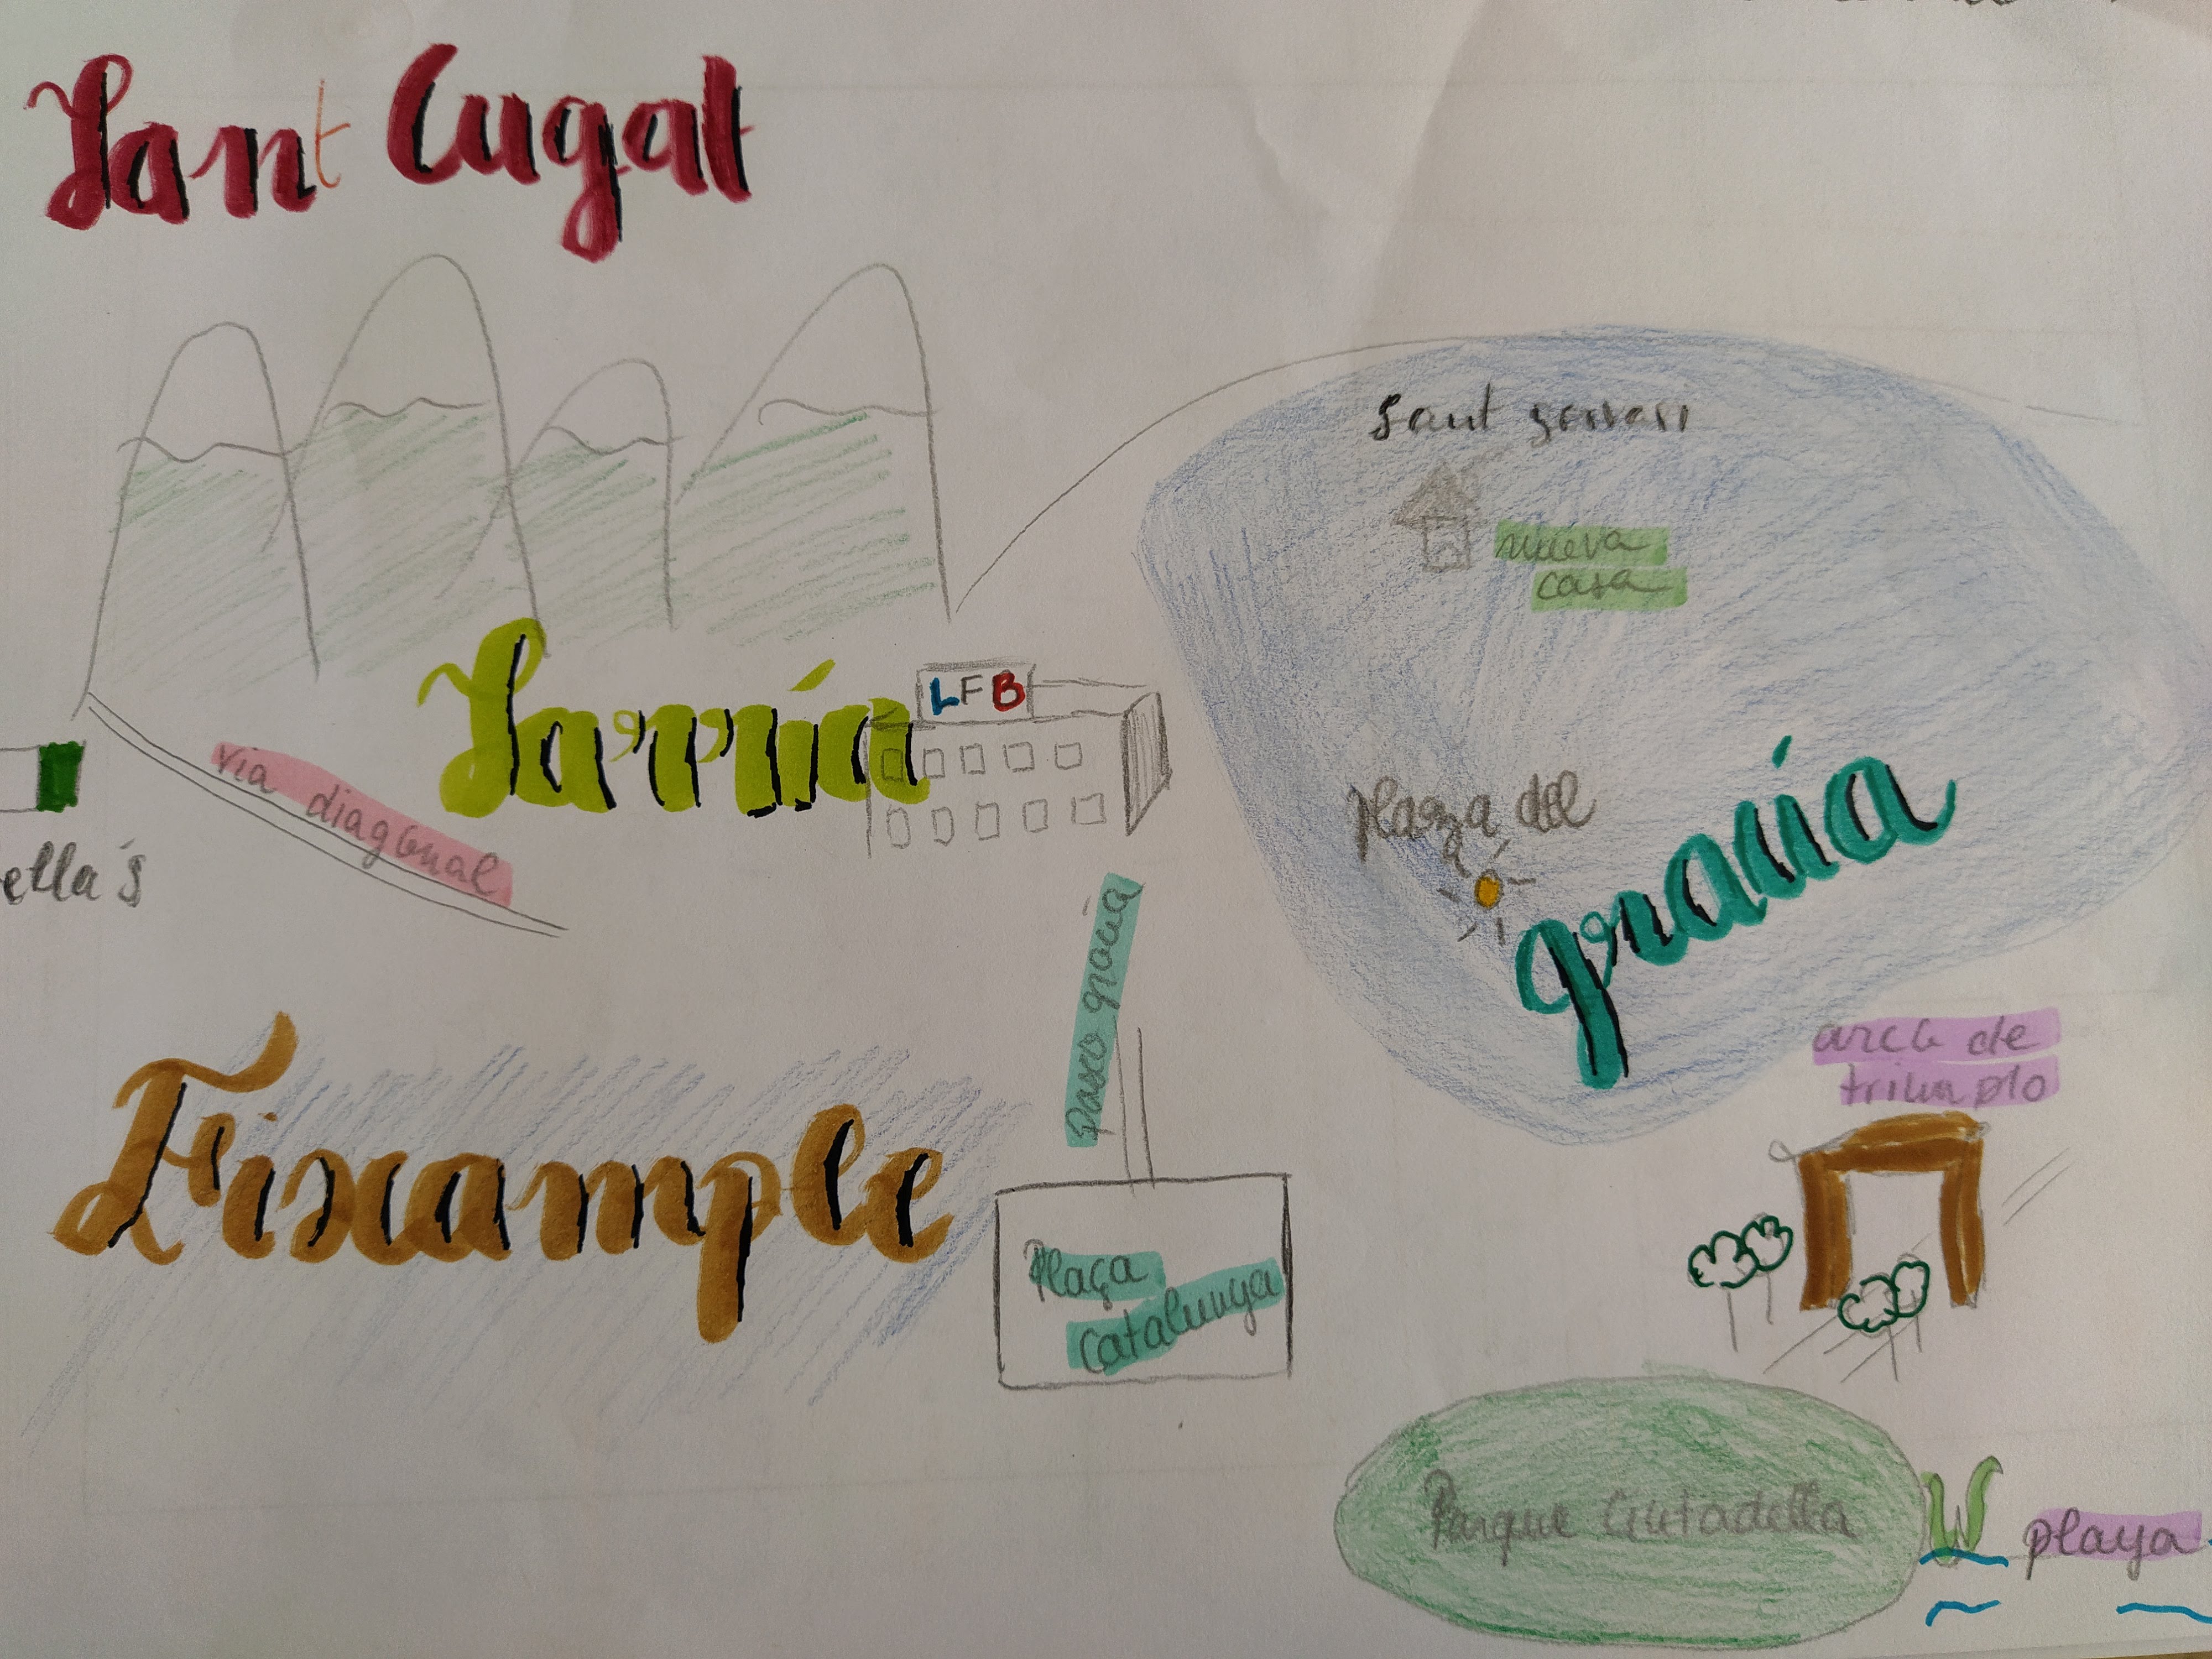 Sant Cugat
Sant gervasi
nueva
casa
Sarría
LFB
via diagonal
ella's
Plaza del
gracia
paseo gracia
arco de
triumplo
Eixample
Plaça
Catalunya
Parque Ciutadella
playa